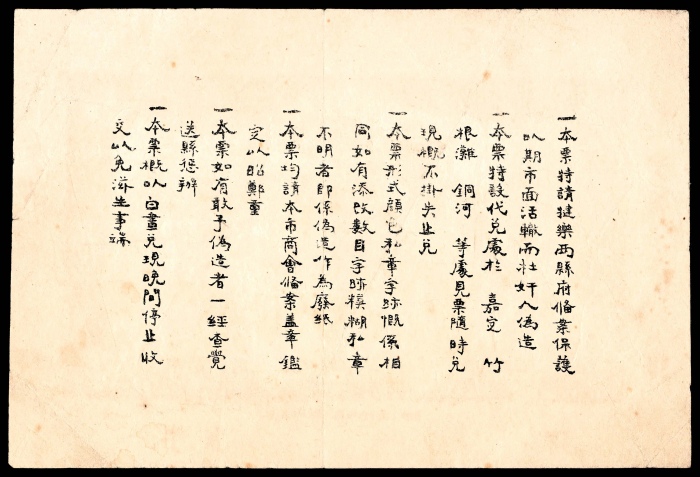 一本票特請犍樂兩縣府俻案保護
以期市面活輸而杜奸人偽造
一本票特設代兌處於 嘉定 竹
根灘 銅河 等處見票隨時兌
現概不掛失止兌
一本票形式顔色私章字跡慨係相
同如有添改數目字跡模糊私章
不明者即係偽造作為廢紙
一本票均請本市商會俻案盖章鑑
定以昭鄭重
一本票如有敢予偽造者一經查覺
送縣懲辦
一本票概以白晝兌現晚間停止收
交以免滋生事端